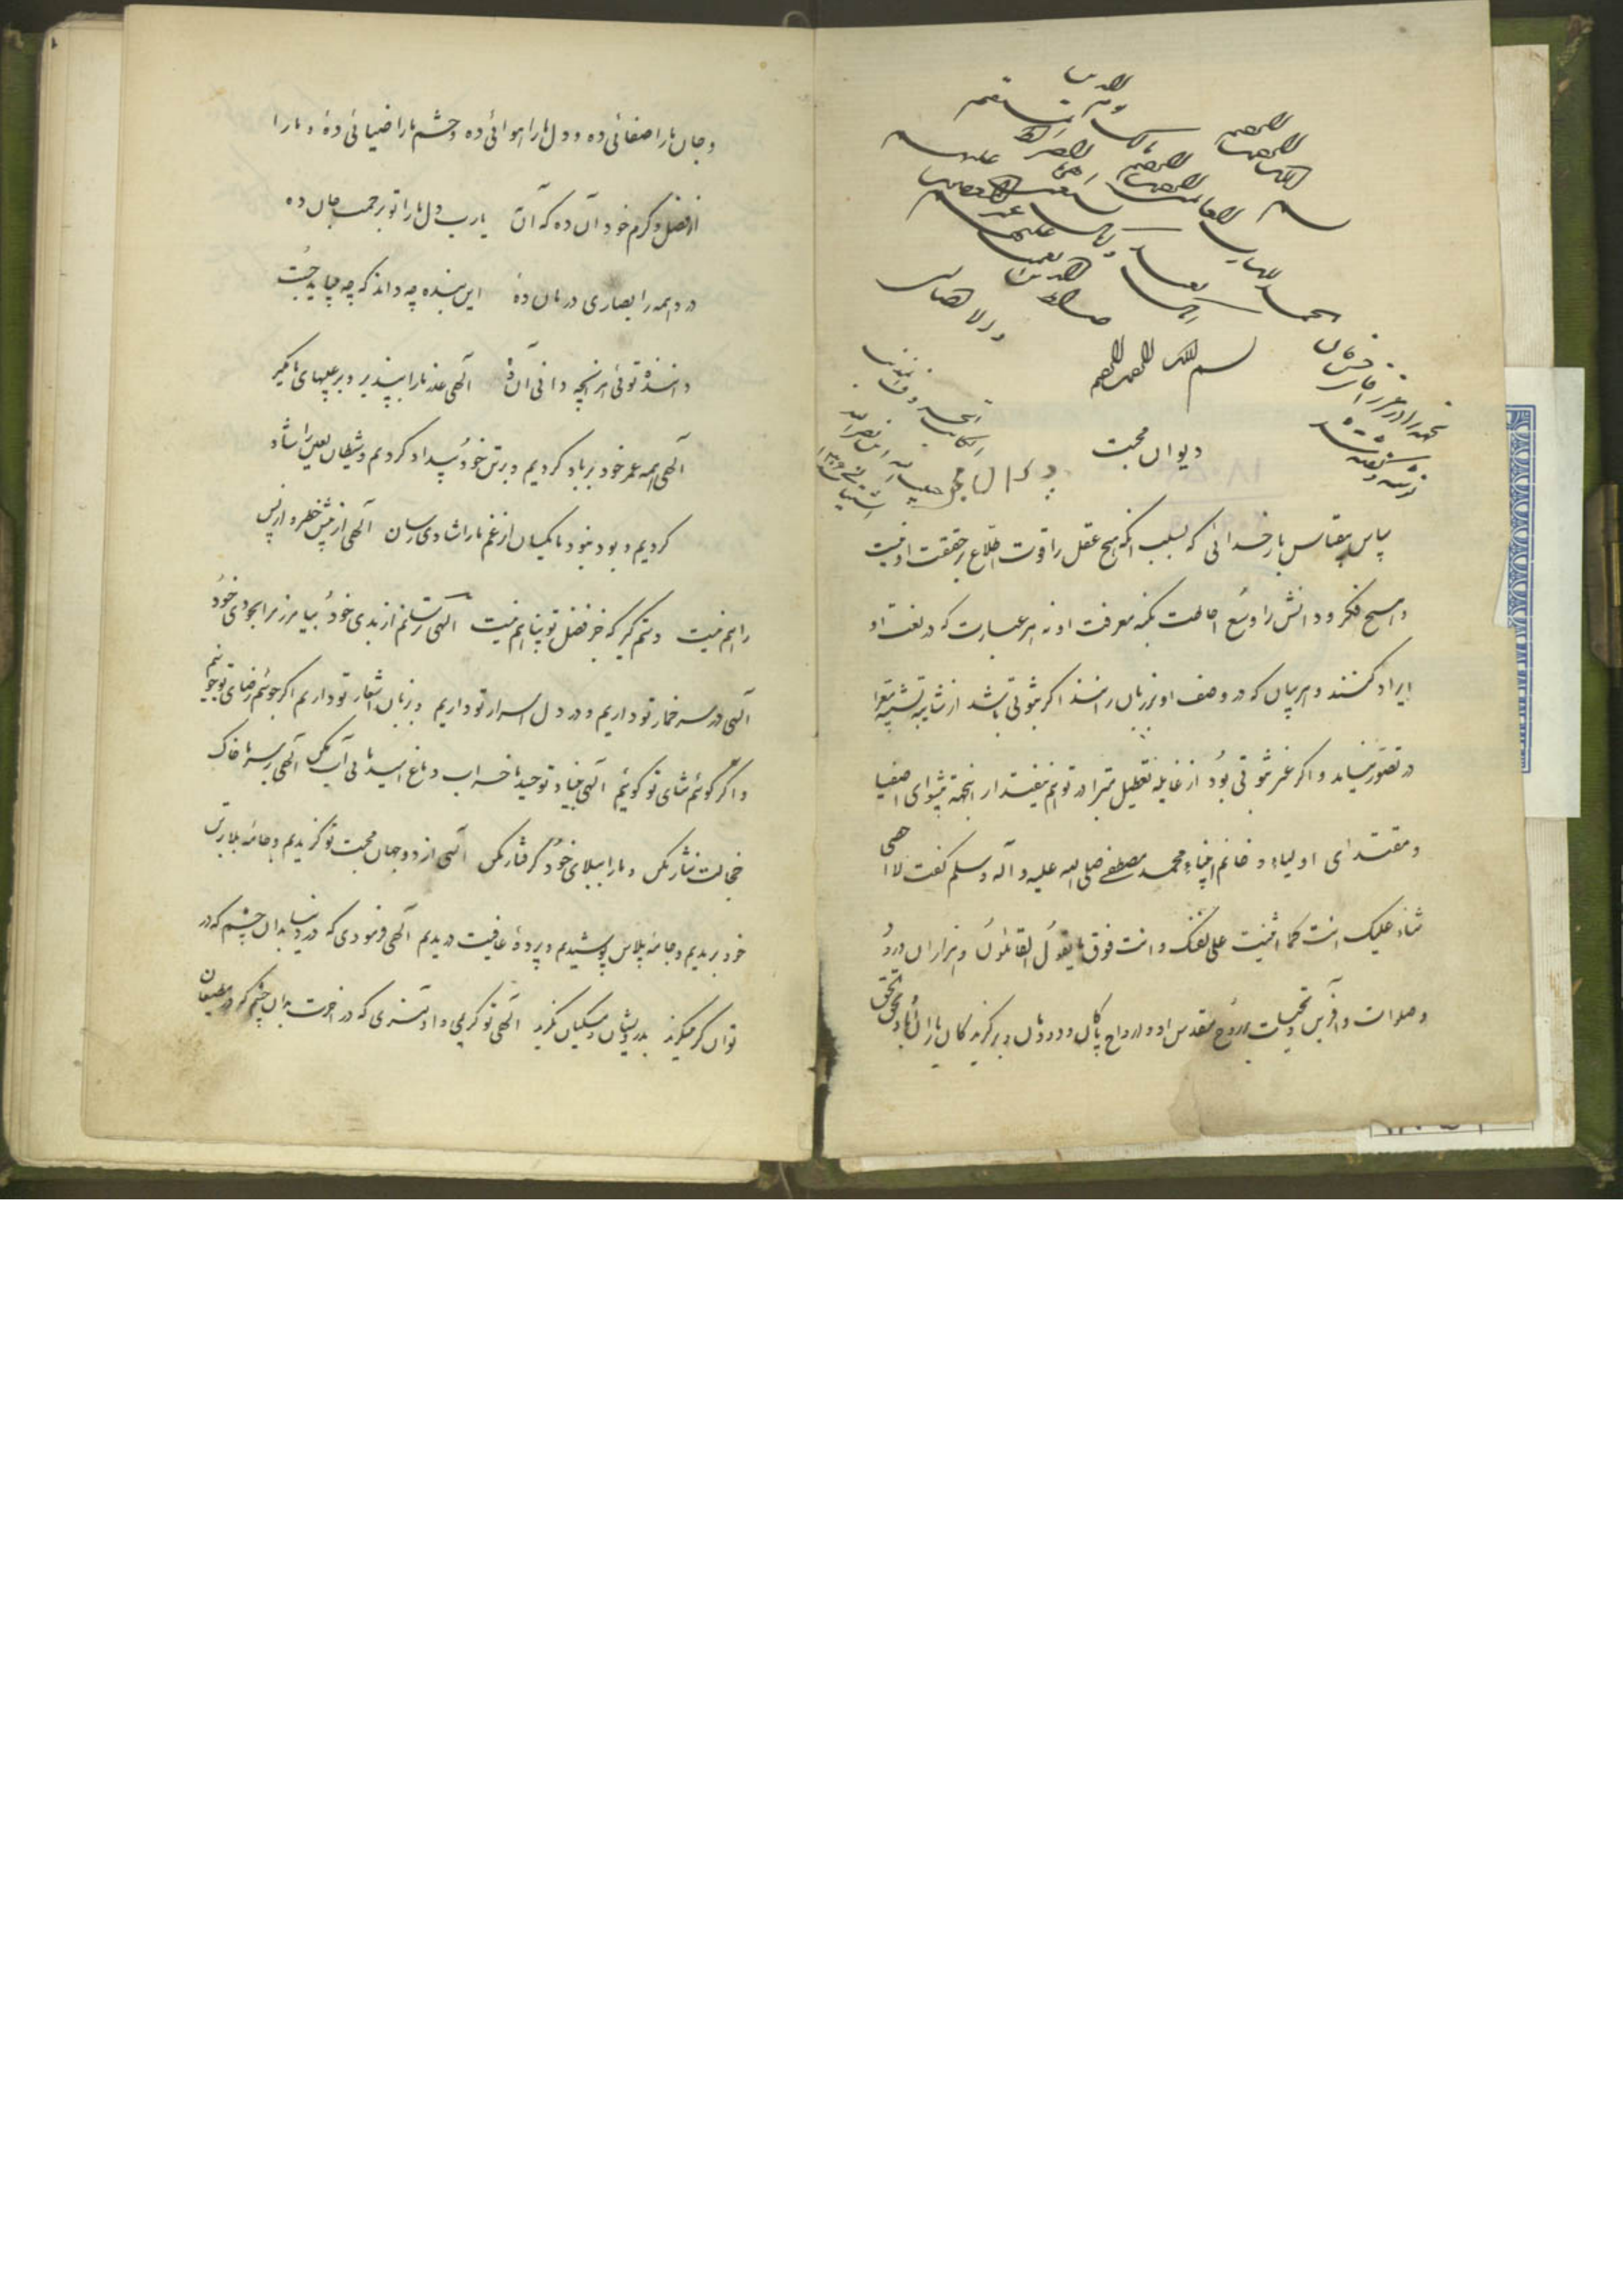 بسم الله الرحمن الرحیم
الحمد لله رب العالمین الرحمن الرحیم مالک یوم الدین
ایاک نعبد و ایاک نستعین اهدنا الصراط المستقیم
صراط الذین انعمت علیهم غیر المغضوب علیهم
ولا الضالین
بسم الله الرحمن الرحیم
دیوان محبت
سپاس بیقیاس بار خدائی که بسبب آنکه هیچ عقل را قوت اطلاع بر حقیقت او نیست
و هیچ فکر و دانش را وسع احاطت بکنه معرفت او نه هر عبارت که در نعت او
ایراد کنند و هر بیان که در وصف او بر زبان رانند اگر ثبوتی باشد از شایبه تشبیه معرا
در تصور نیاید و اگر غیر ثبوتی بود از غایله تعطیل مبرا در توهم نیفتد از اینجهة پیشوای اصفیا
و مقتدای اولیاء و خاتم انبیاء محمد مصطفی صلی الله علیه و آله و سلم گفت لا احصی
ثناء علیک انت کما اثنیت علی نفسک و انت فوق ما یقول القائلون و هزاران درود
و صلوات و آفرین و تحیات بر روح مقدس او و ارواح پاکان دودمان و برگزیدگان یاران او باد بحق الحق
و جان ما را صفائی ده و دل ما را هوائی ده و چشم ما را ضیائی ده و ما را
از فضل و کرم خود آن ده که آن یارب دل ما را تو برحمت جان ده
درد همه را بصابری درمان ده این بنده چه داند که چه میباید جست
داننده توئی هر آنچه دانی آن ده الهی عذر ما را بپذیر و بر عیبهای ما مگیر
الهی همه عمر خود بر باد کردیم و بر تن خود بیداد کردیم و شیطان لعین را شاد
کردیم و بود و نبود ما یکسان از غم ما را شادی رسان الهی از پیش خطر و از پس
راهم نیست دستم گیر که جز فضل تو پناهم نیست الهی ترسانم از بدی خود بیامرز مرا بخودی خود
الهی در سر خمار تو داریم و در دل اسرار تو داریم و بر زبان اشعار تو داریم اگر جوئیم رضای تو جوئیم
و اگر گوئیم ثنای تو گوئیم الهی بنیاد توحید ما خراب و باغ امید ما بی آب مکن الهی بر سر ما خاک
خجالت نثار مکن و ما را ببلای خود گرفتار مکن الهی از دو جهان محبت تو گزیدیم و جامه بلا بر تن
خود بریدیم و جامه پلاس پوشیدیم و پرده عافیت دریدیم الهی فرمودی که در دنیا بدان چشم که در
توانگر میگرند بدرویشان و مسکینان نگرید الهی تو کریمی و اولیتری که در آخرت بدان چشم که در مطیعان